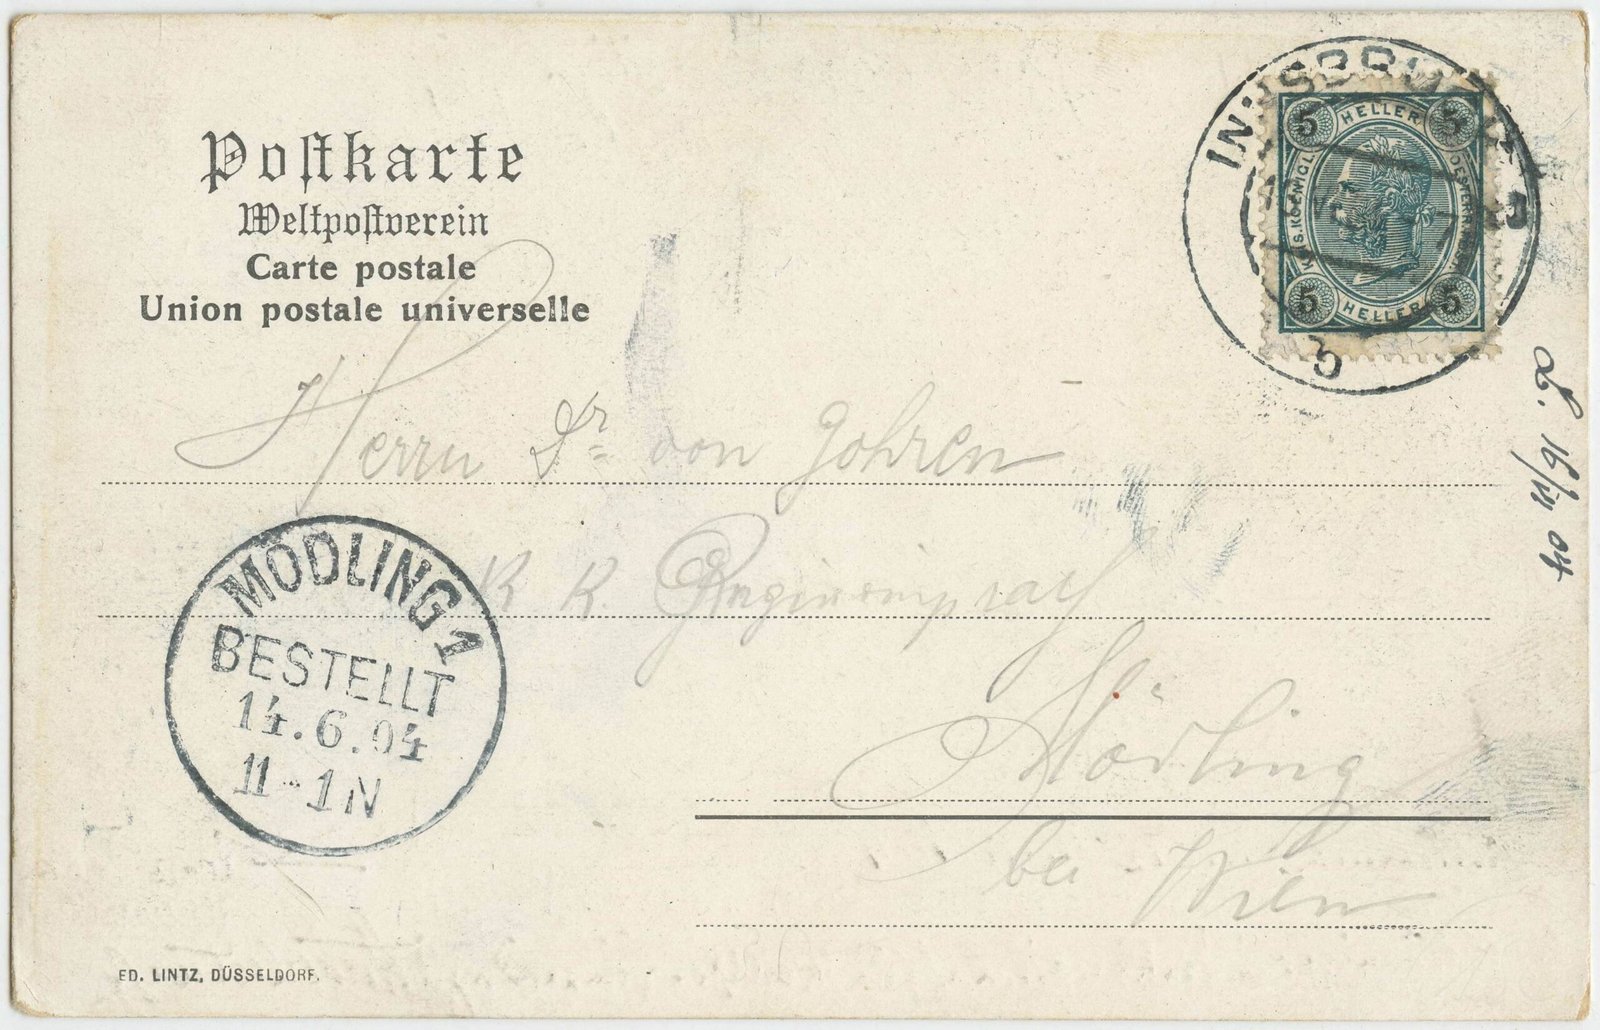 Postkarte
Weltpostverein
Carte postale
Union postale universelle
INNSBRUCK
5
5 HELLER 5
5 HELLER 5
Herrn Dr von Gohren
K K
Mödling
bei Wien
MÖDLING 1
BESTELLT
14.6.04
11-1N
16/VI 04
ED. LINTZ, DÜSSELDORF.